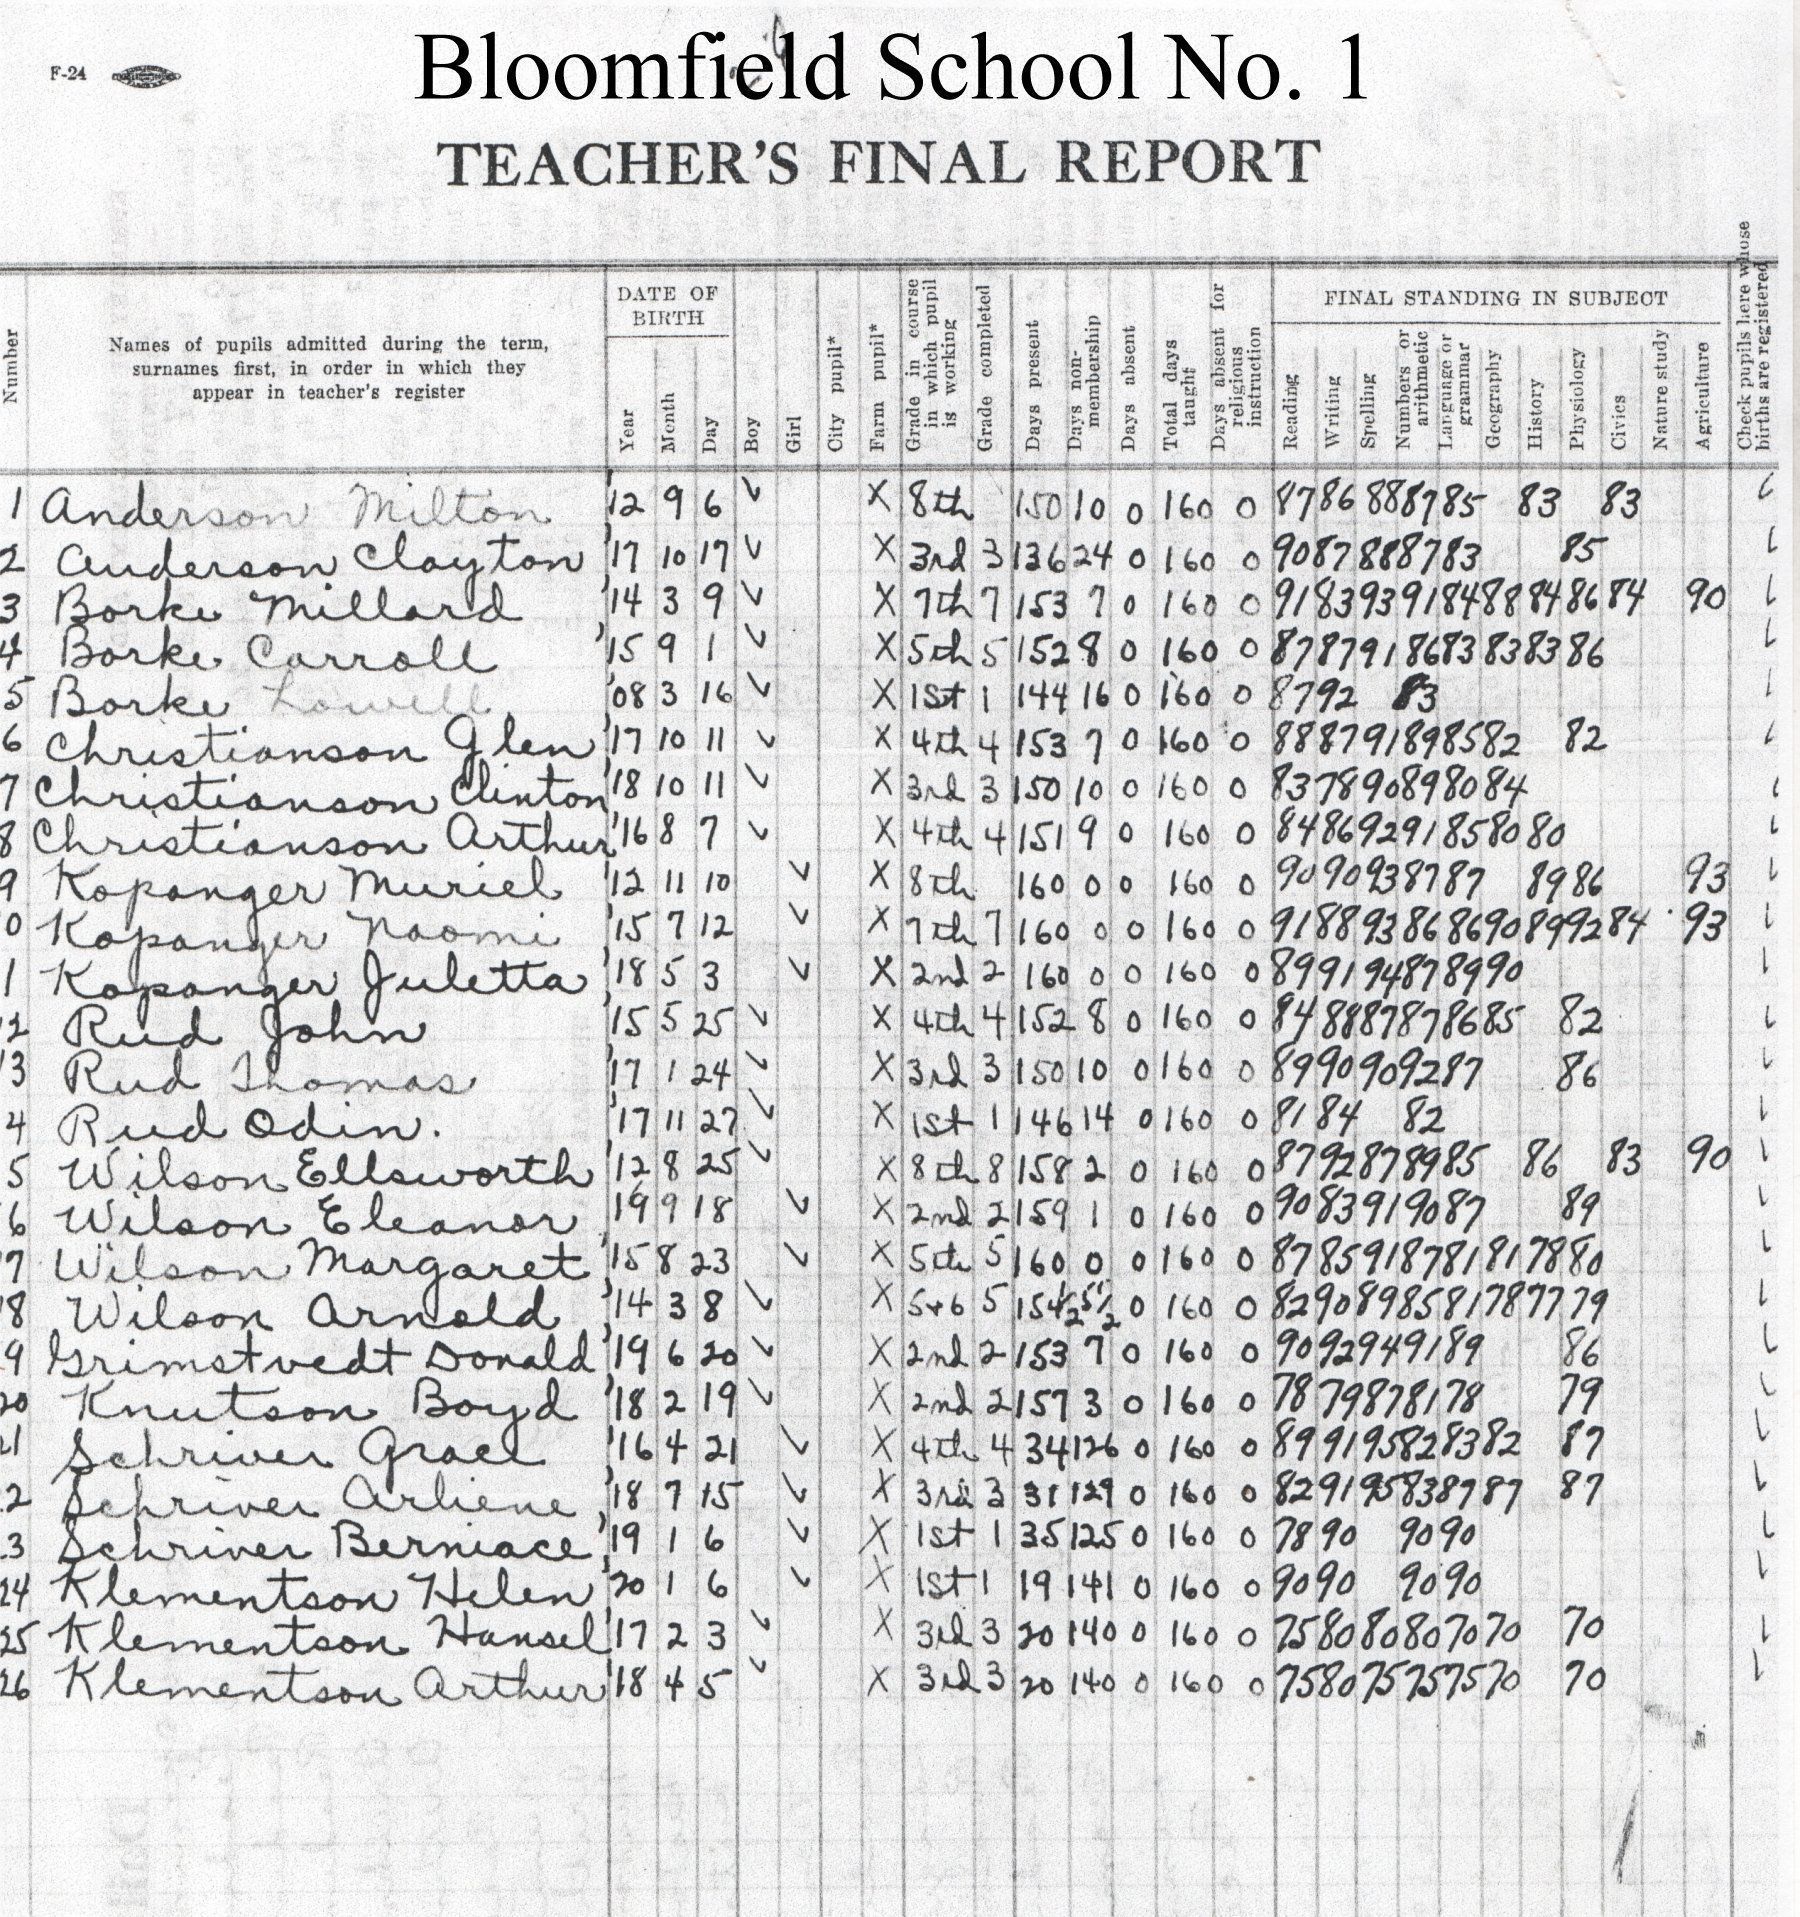 Bloomfield School No. 1
F-24
TEACHER'S FINAL REPORT
Number
Names of pupils admitted during the term, surnames first, in order in which they appear in teacher's register
DATE OF BIRTH
Year Month Day Boy Girl City pupil* Farm pupil* Grade in course in which pupil is working Grade completed Days present Days non-membership Days absent Total days taught Days absent for religious instruction
FINAL STANDING IN SUBJECT
Reading Writing Spelling Numbers or arithmetic Language or grammar Geography History Physiology Civics Nature study Agriculture
Check pupils here whose births are registered
1 Anderson Milton '12 9 6 ✓ X 8th 150 10 0 160 0 87 86 88 87 85 83 83 ✓
2 Anderson Clayton '17 10 17 ✓ X 3rd 3 136 24 0 160 0 90 87 88 87 83 85 ✓
3 Borke Millard '14 3 9 ✓ X 7th 7 153 7 0 160 0 91 83 93 91 84 88 84 86 84 90 ✓
4 Borke Carroll '15 9 1 ✓ X 5th 5 152 8 0 160 0 87 87 91 86 83 83 83 86 ✓
5 Borke Lowell '08 3 16 ✓ X 1st 1 144 16 0 160 0 87 92 83 ✓
6 Christianson Glen '17 10 11 ✓ X 4th 4 153 7 0 160 0 88 87 91 89 85 82 82 ✓
7 Christianson Clinton '18 10 11 ✓ X 3rd 3 150 10 0 160 0 83 78 90 89 80 84 ✓
8 Christianson Arthur '16 8 7 ✓ X 4th 4 151 9 0 160 0 84 86 92 91 85 80 80 ✓
9 Kopanger Muriel '12 11 10 ✓ X 8th 160 0 0 160 0 90 90 93 87 87 89 86 93 ✓
0 Kopanger Naomi '15 7 12 ✓ X 7th 7 160 0 0 160 0 91 88 93 86 86 90 89 92 84 93 ✓
1 Kopanger Juletta '18 5 3 ✓ X 2nd 2 160 0 0 160 0 89 91 94 87 89 90 ✓
12 Rud John '15 5 25 ✓ X 4th 4 152 8 0 160 0 84 88 87 87 86 85 82 ✓
13 Rud Thomas '17 1 24 ✓ X 3rd 3 150 10 0 160 0 89 90 90 92 87 86 ✓
4 Rud Odin. '17 11 27 ✓ X 1st 1 146 14 0 160 0 81 84 82 ✓
5 Wilson Ellsworth '12 8 25 ✓ X 8th 8 158 2 0 160 0 87 92 87 89 85 86 83 90 ✓
6 Wilson Eleanor '19 9 18 ✓ X 2nd 2 159 1 0 160 0 90 83 91 90 87 89 ✓
7 Wilson Margaret '15 8 23 ✓ X 5th 5 160 0 0 160 0 87 85 91 87 81 81 78 80 ✓
18 Wilson Arnold '14 3 8 ✓ X 5+6 5 154½ 5½ 0 160 0 82 90 89 85 81 78 77 79 ✓
9 Grimstvedt Donald '19 6 20 ✓ X 2nd 2 153 7 0 160 0 90 92 94 91 89 86 ✓
20 Knutson Boyd '18 2 19 ✓ X 2nd 2 157 3 0 160 0 78 79 87 81 78 79 ✓
21 Schriver Grace '16 4 21 ✓ X 4th 4 34 126 0 160 0 89 91 95 82 83 82 87 ✓
2 Schriver Arliene '18 7 15 ✓ X 3rd 3 31 129 0 160 0 82 91 95 83 87 87 87 ✓
3 Schriver Berniace '19 1 6 ✓ X 1st 1 35 125 0 160 0 78 90 90 90 ✓
24 Klementson Helen '20 1 6 ✓ X 1st 1 19 141 0 160 0 90 90 90 90 ✓
25 Klementson Hansel '17 2 3 ✓ X 3rd 3 20 140 0 160 0 75 80 80 80 70 70 70 ✓
26 Klementson Arthur '18 4 5 ✓ X 3rd 3 20 140 0 160 0 75 80 75 75 75 70 70 ✓